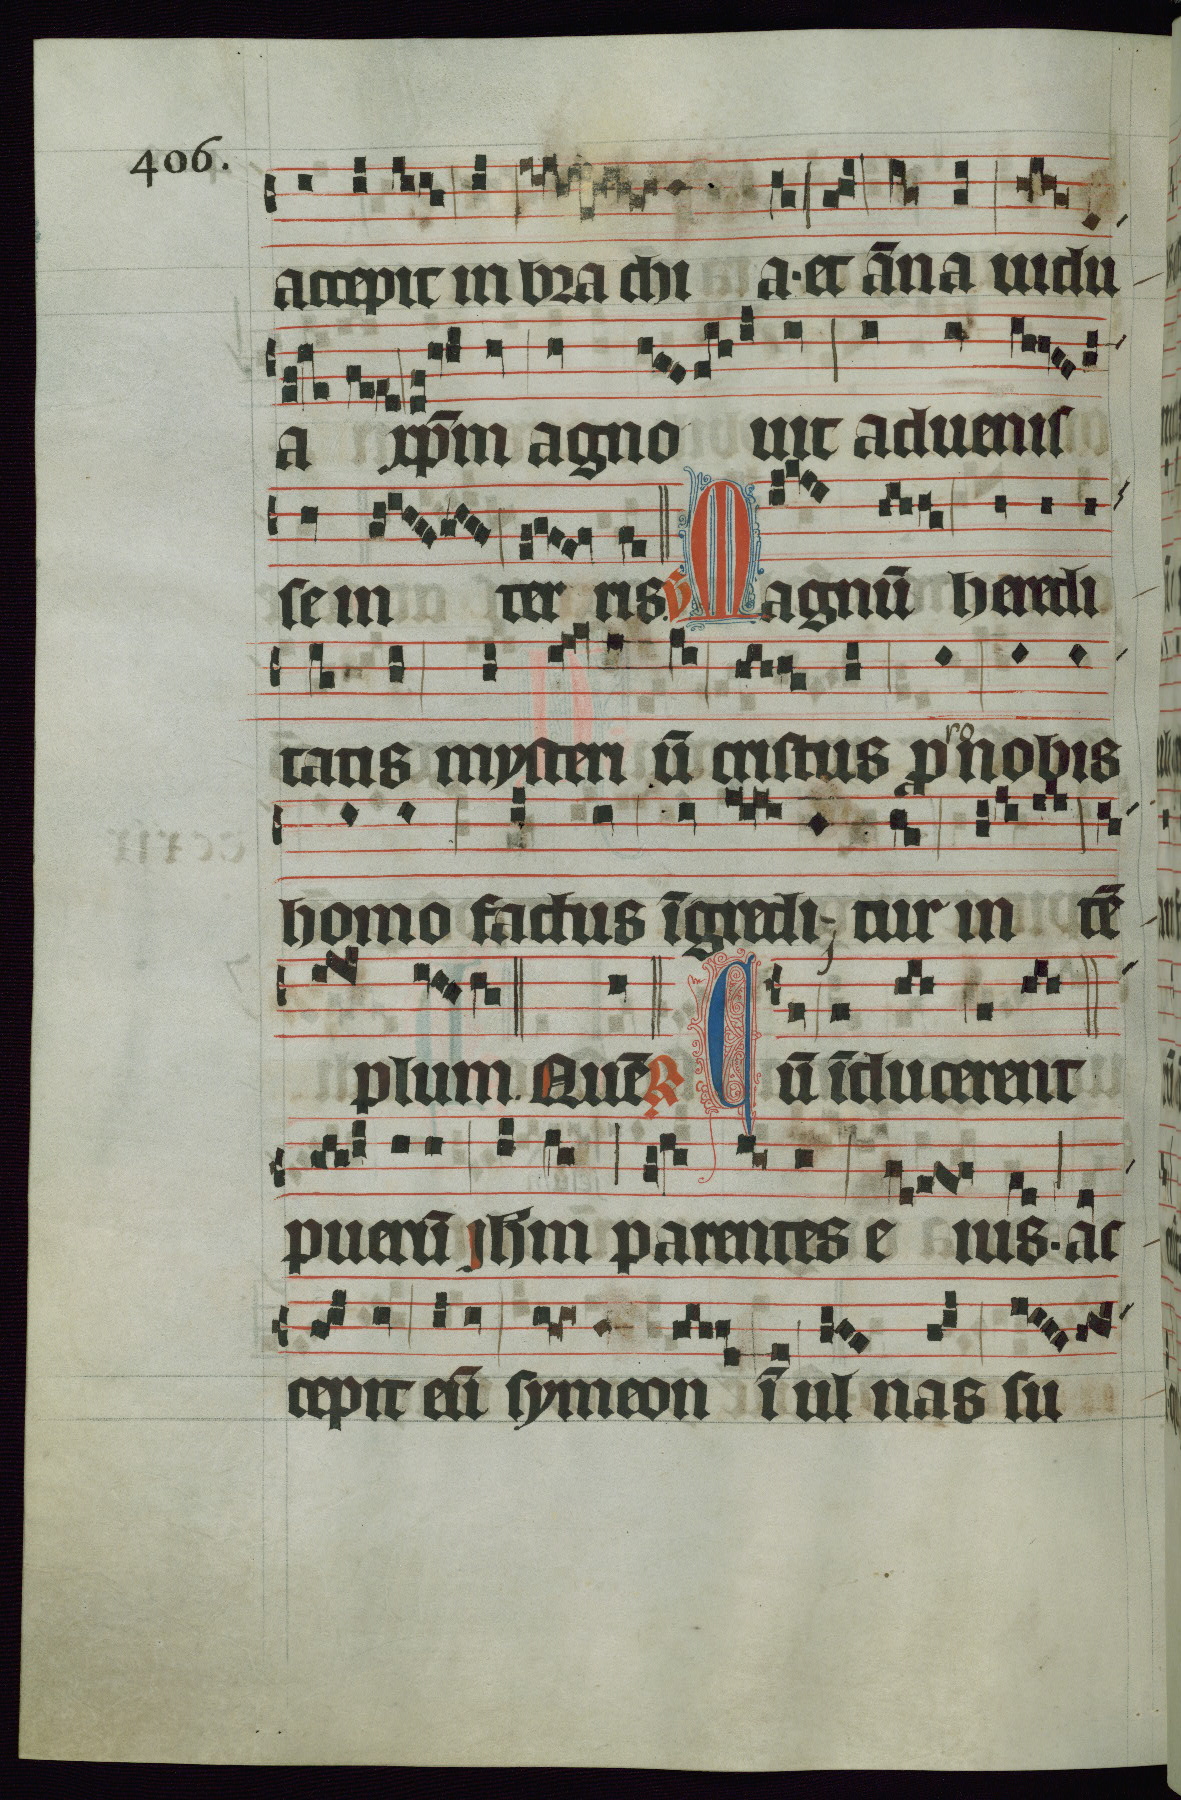 406.
accepit in bra chi a· et āna uidu
a xp̄m agno uit aduenis
se in ter ris. V̄ Magnū heredi
tatis mysteri ū cristus pro nobis
homo factus īgredi, tur in tē
plum. Quē R Cū īducerent
puerū ihm̄ parentes e ius· ac
cepit eū symeon ī ul nas su